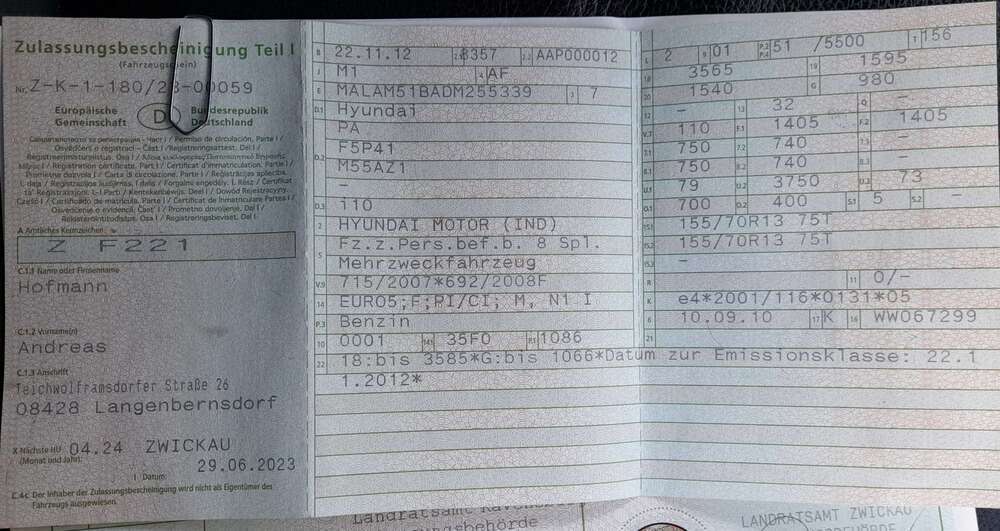 Zulassungsbescheinigung Teil I
(Fahrzeugschein)
Nr. Z-K-1-180/23-00059
Europäische Gemeinschaft
D
Bundesrepublik Deutschland
A Amtliches Kennzeichen
Z F221
C.1.1 Name oder Firmenname
Hofmann
C.1.2 Vorname(n)
Andreas
C.1.3 Anschrift
Teichwolframsdorfer Straße 26
08428 Langenbernsdorf
X Nächste HU 04.24 ZWICKAU
(Monat und Jahr)
I Datum:
29.06.2023
C.4c Der Inhaber der Zulassungsbescheinigung wird nicht als Eigentümer des
Fahrzeugs ausgewiesen.
B 22.11.12 2.1 8357 2.2 AAP000012
J M1 4 AF
E MALAM51BADM255339 3 7
D.1 Hyundai
PA
D.2 F5P41
M55AZ1
-
D.3 i10
2 HYUNDAI MOTOR (IND)
5 Fz.z.Pers.bef.b. 8 Spl.
Mehrzweckfahrzeug
V.9 715/2007*692/2008F
14 EURO5;F;PI/CI; M, N1 I
P.3 Benzin
10 0001 14.1 35F0 P.1 1086
22 18:bis 3585*G:bis 1066*Datum zur Emissionsklasse: 22.1
1.2012*
L 2 9 01 P.2 P.4 51 /5500 T 156
18 3565 19 1595
20 1540 G 980
12 - 13 32 Q -
V.7 110 F.1 1405 F.2 1405
7.1 750 7.2 740 7.3 -
8.1 750 8.2 740 8.3 -
U.1 79 U.2 3750 U.3 73
O.1 700 O.2 400 S.1 5 S.2 -
15.1 155/70R13 75T
15.2 155/70R13 75T
15.3 -
R 11 0/-
K e4*2001/116*0131*05
6 10.09.10 17 K 16 WW067299
21
Landratsamt
LANDRATSAMT ZWICKAU